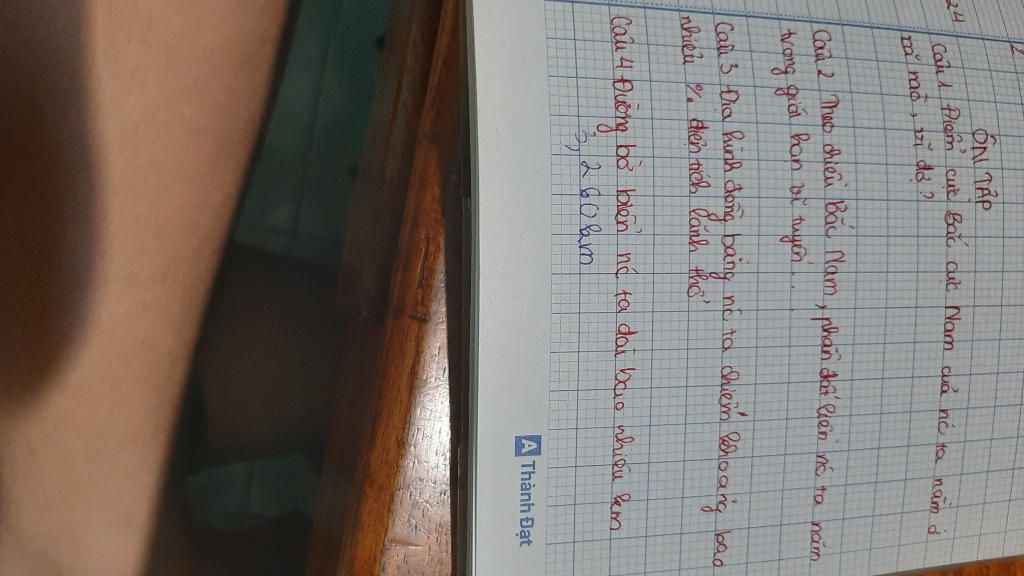 24
ÔN TẬP
Câu 1 Điểm cực Bắc cực Nam của nc ta nằm ở
xã nào, vĩ độ?
Câu 2 Theo chiều Bắc Nam, phần đất liền nc ta nằm
trong giới hạn vĩ tuyến..
Câu 3 Địa hình đồng bằng nc ta chiếm khoảng bao
nhiêu % diện tích lãnh thổ
Câu 4 Đường bờ biển nc ta dài bao nhiêu km
3,260km
A Thành Đạt